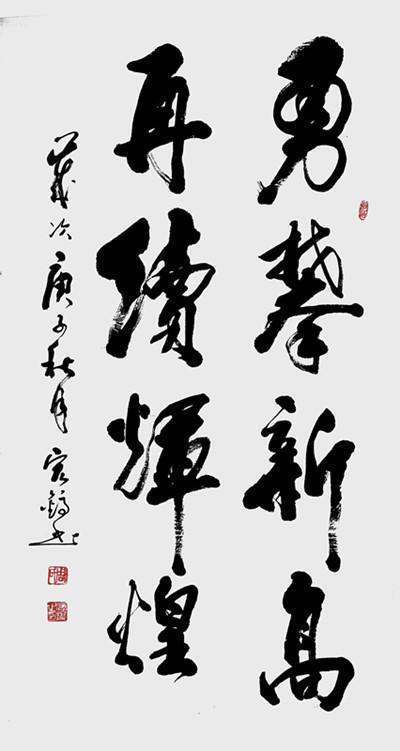 勇攀新高
再續輝煌
歲次庚子秋月宏錫書